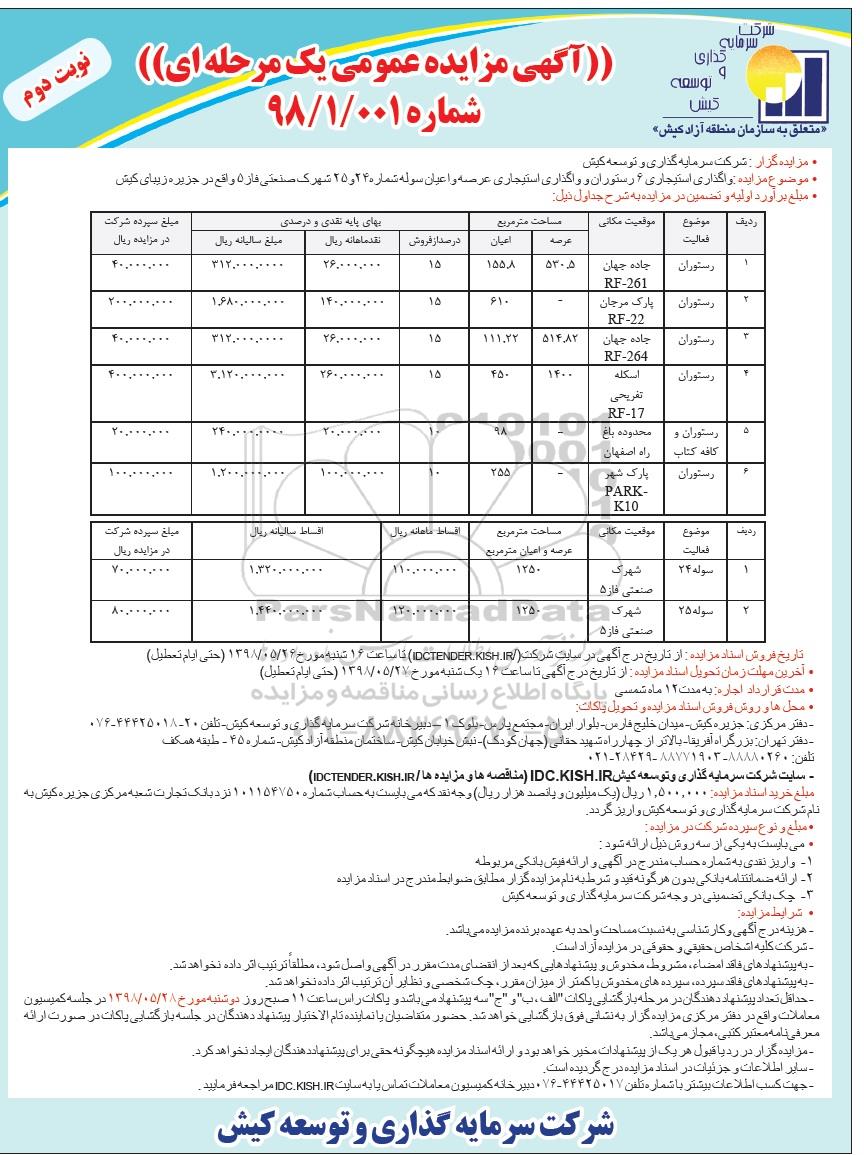 شرکت
سرمایه
گذاری
و
توسعه
کیش
«متعلق به سازمان منطقه آزاد کیش»
نوبت دوم
((آگهی مزایده عمومی یک مرحله ای))
شماره ۹۸/۱/۰۰۱
• مزایده گزار : شرکت سرمایه گذاری و توسعه کیش
• موضوع مزایده : واگذاری استیجاری ۶ رستوران و واگذاری استیجاری عرصه و اعیان سوله شماره ۲۴ و ۲۵ شهرک صنعتی فاز ۵ واقع در جزیره زیبای کیش
• مبلغ برآورد اولیه و تضمین در مزایده به شرح جداول ذیل:
ردیف | موضوع فعالیت | موقعیت مکانی | مساحت مترمربع | بهای پایه نقدی و درصدی | مبلغ سپرده شرکت در مزایده ریال
عرصه | اعیان | درصدازفروش | نقدماهانه ریال | مبلغ سالیانه ریال
۱ | رستوران | جاده جهان RF-261 | ۵۳۰.۵ | ۱۵۵.۸ | ۱۵ | ۲۶.۰۰۰.۰۰۰ | ۳۱۲.۰۰۰.۰۰۰۰ | ۴۰.۰۰۰.۰۰۰
۲ | رستوران | پارک مرجان RF-22 | - | ۶۱۰ | ۱۵ | ۱۴۰.۰۰۰.۰۰۰ | ۱.۶۸۰.۰۰۰.۰۰۰ | ۲۰۰.۰۰۰.۰۰۰
۳ | رستوران | جاده جهان RF-264 | ۵۱۴.۸۲ | ۱۱۱.۲۲ | ۱۵ | ۲۶.۰۰۰.۰۰۰ | ۳۱۲.۰۰۰.۰۰۰۰ | ۴۰.۰۰۰.۰۰۰
۴ | رستوران | اسکله تفریحی RF-17 | ۱۴۰۰ | ۴۵۰ | ۱۵ | ۲۶۰.۰۰۰.۰۰۰ | ۳.۱۲۰.۰۰۰.۰۰۰ | ۴۰۰.۰۰۰.۰۰۰
۵ | رستوران و کافه کتاب | محدوده باغ راه اصفهان | - | ۹۸ | ۱۰ | ۲۰.۰۰۰.۰۰۰ | ۲۴۰.۰۰۰.۰۰۰۰ | ۲۰.۰۰۰.۰۰۰
۶ | رستوران | پارک شهر PARK-K10 | - | ۲۵۵ | ۱۰ | ۱۰۰.۰۰۰.۰۰۰ | ۱.۲۰۰.۰۰۰.۰۰۰ | ۱۰۰.۰۰۰.۰۰۰
ردیف | موضوع فعالیت | موقعیت مکانی | مساحت مترمربع عرصه و اعیان مترمربع | اقساط ماهانه ریال | اقساط سالیانه ریال | مبلغ سپرده شرکت در مزایده ریال
۱ | سوله ۲۴ | شهرک صنعتی فاز۵ | ۱۲۵۰ | ۱۱۰.۰۰۰.۰۰۰ | ۱.۳۲۰.۰۰۰.۰۰۰ | ۷۰.۰۰۰.۰۰۰
۲ | سوله ۲۵ | شهرک صنعتی فاز۵ | ۱۲۵۰ | ۱۲۰.۰۰۰.۰۰۰ | ۱.۴۴۰.۰۰۰.۰۰۰ | ۸۰.۰۰۰.۰۰۰
ParsNamadData
پایگاه اطلاع رسانی مناقصه و مزایده
تاریخ فروش اسناد مزایده : از تاریخ درج آگهی در سایت شرکت(/IDCTENDER.KISH.IR) تا ساعت ۱۶ شنبه مورخ ۱۳۹۸/۰۵/۲۶ (حتی ایام تعطیل)
• آخرین مهلت زمان تحویل اسناد مزایده : از تاریخ درج آگهی تا ساعت ۱۶ یک شنبه مورخ ۱۳۹۸/۰۵/۲۷ (حتی ایام تعطیل)
• مدت قرارداد اجاره: به مدت ۱۲ ماه شمسی
• محل ها و روش فروش اسناد مزایده و تحویل پاکات:
- دفتر مرکزی: جزیره کیش- میدان خلیج فارس- بلوار ایران- مجتمع پارس- بلوک ۱ – دبیرخانه شرکت سرمایه گذاری و توسعه کیش- تلفن ۲۰-۴۴۴۲۵۰۱۸-۰۷۶
- دفتر تهران: بزرگراه آفریقا- بالاتر از چهارراه شهید حقانی (جهان کودک)- نبش خیابان کیش- ساختمان منطقه آزاد کیش- شماره ۴۵ - طبقه همکف
تلفن: ۸۸۸۸۰۲۶۰- ۸۸۷۷۱۹۰۳ -۲۸۴۲۹-۰۲۱
- سایت شرکت سرمایه گذاری وتوسعه کیش IDC.KISH.IR (مناقصه ها و مزایده ها / IDCTENDER.KISH.IR)
مبلغ خرید اسناد مزایده: ۱,۵۰۰,۰۰۰ ریال (یک میلیون و پانصد هزار ریال) وجه نقد که می بایست به حساب شماره ۱۰۱۱۵۴۷۵۰ نزد بانک تجارت شعبه مرکزی جزیره کیش به
نام شرکت سرمایه گذاری و توسعه کیش واریز گردد.
• مبلغ و نوع سپرده شرکت در مزایده :
• می بایست به یکی از سه روش ذیل ارائه شود :
۱- واریز نقدی به شماره حساب مندرج در آگهی و ارائه فیش بانکی مربوطه
۲- ارائه ضمانتنامه بانکی بدون هرگونه قید و شرط به نام مزایده گزار مطابق ضوابط مندرج در اسناد مزایده
۳- چک بانکی تضمینی در وجه شرکت سرمایه گذاری و توسعه کیش
• شرایط مزایده:
- هزینه درج آگهی وکارشناسی به نسبت مساحت واحد به عهده برنده مزایده می‌باشد.
- شرکت کلیه اشخاص حقیقي و حقوقی در مزایده آزاد است.
- به پیشنهادهای فاقد امضاء، مشروط، مخدوش و پیشنهادهایی که بعد از انقضای مدت مقرر در آگهی واصل شود، مطلقاً ترتیب اثر داده نخواهد شد.
- به پیشنهادهای فاقد سپرده، سپرده های مخدوش یا کمتر از میزان مقرر، چک شخصی و نظایر آن ترتیب اثر داده نخواهد شد.
- حداقل تعداد پیشنهاد دهندگان در مرحله بازگشایی پاکات "الف ، ب" و "ج" سه پیشنهاد می باشد و پاکات راس ساعت ۱۱ صبح روز دوشنبه مورخ ۱۳۹۸/۰۵/۲۸ در جلسه کمیسیون
معاملات واقع در دفتر مرکزی مزایده گزار به نشانی فوق بازگشایی خواهد شد. حضور متقاضیان یا نماینده تام الاختیار پیشنهاد دهندگان در جلسه بازگشایی پاکات در صورت ارائه
معرفی‌نامه معتبر کتبی، مجاز می‌باشد.
- مزایده گزار در رد یا قبول هر یک از پیشنهادات مخیر خواهد بود و ارائه اسناد مزایده هیچگونه حقی برای پیشنهاددهندگان ایجاد نخواهد کرد.
- سایر اطلاعات و جزئیات در اسناد مزایده درج گردیده است.
- جهت کسب اطلاعات بیشتر با شماره تلفن ۴۴۴۲۵۰۱۷-۰۷۶ دبیرخانه کمیسیون معاملات تماس یا به سایت IDC.KISH.IR مراجعه فرمایید .
شرکت سرمایه گذاری و توسعه کیش